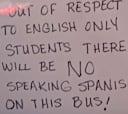 OUT OF RESPECT
TO ENGLISH ONLY
STUDENTS THERE
WILL BE NO
SPEAKING SPANIS
ON THIS BUS!